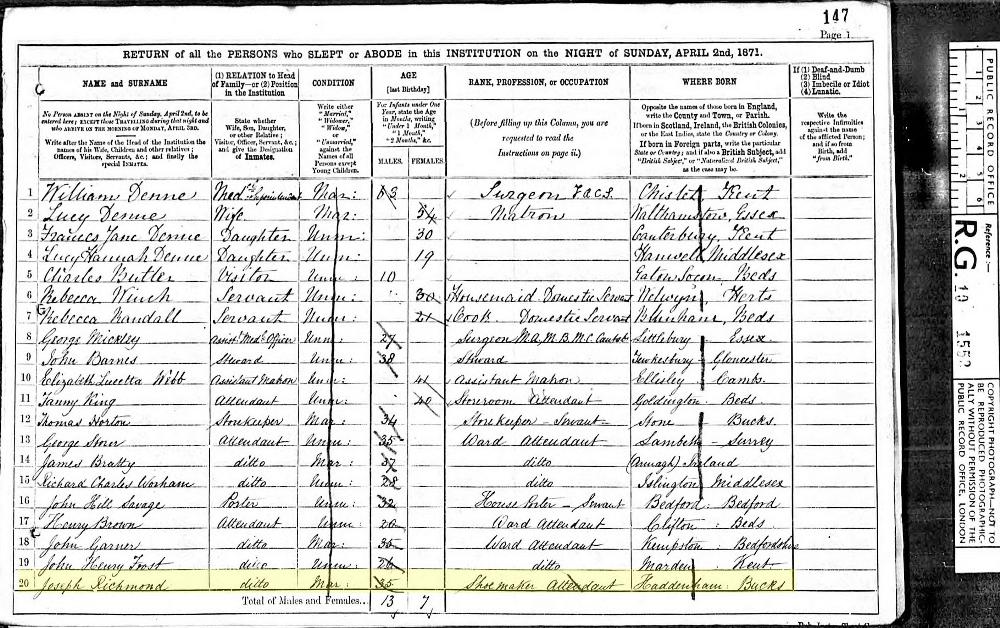 147
Page 1
RETURN of all the PERSONS who SLEPT or ABODE in this INSTITUTION on the NIGHT of SUNDAY, APRIL 2nd, 1871.
NAME and SURNAME
No Person ABSENT on the Night of Sunday, April 2nd, to be entered here; EXCEPT those TRAVELLING during that night and who ARRIVE ON THE MORNING OF MONDAY, APRIL 3RD.
Write after the Name of the Head of the Institution the names of his Wife, Children and other relatives; Officers, Visitors, Servants, &c.; and finally the special INMATES.
(1) RELATION to Head of Family—or (2) Position in the Institution
State whether Wife, Son, Daughter, or other Relative; Visitor, Officer, Servant, &c.; and give the Designation of INMATES.
CONDITION
Write either "Married," "Widower," "Widow," or "Unmarried," against the Names of all Persons except Young Children.
AGE
[last Birthday]
For Infants under One Year, state the Age in Months, writing "Under 1 Month," "1 Month," "2 Months," &c.
MALES. FEMALES.
RANK, PROFESSION, or OCCUPATION
(Before filling up this Column, you are requested to read the Instructions on page ii.)
WHERE BORN
Opposite the names of those born in England, write the County and Town, or Parish.
If born in Scotland, Ireland, the British Colonies, or the East Indies, state the Country or Colony.
If born in Foreign parts, write the particular State or Country; and if also a British Subject, add "British Subject," or "Naturalized British Subject," as the case may be.
If (1) Deaf-and-Dumb
(2) Blind
(3) Imbecile or Idiot
(4) Lunatic.
Write the respective Infirmities against the name of the afflicted Person; and if so from Birth, add "from Birth."
1 William Denne Med Superintendent Mar: 63 Surgeon Chislet Kent
2 Lucy Denne Wife Mar: 54 Matron Walthamstow, Essex
3 Frances Jane Denne Daughter Unm: 30 Canterbury, Kent
4 Lucy Hannah Denne Daughter Unm: 19 Hanwell Middlesex
5 Charles Butler Visitor Unm: 10 Eaton Socon Beds
6 Rebecca Winch Servant Unm: 30 Housemaid Domestic Servant Welwyn Herts
7 Rebecca Randall Servant Unm: 21 Cook Domestic Servant Beds
8 George Mickley Assist Med Officer Unm: 27 Surgeon M.A, M.B, M.C. Cantab Littlebury Essex
9 John Barnes Steward Unm: 38 Steward Tewkesbury Gloucester
10 Elizabeth Lucetta Webb Assistant Matron Unm: 41 Assistant Matron Ellisley Cambs.
11 Fanny King Attendant Unm: 40 Storeroom Attendant Goldington Beds
12 Thomas Horton Storekeeper Mar: 34 Storekeeper - Servant Stone Bucks
13 George Attendant Unm: 35 Ward Attendant Lambeth - Surrey
14 James Bratty ditto Mar: 37 ditto (Armagh) Ireland
15 Richard Charles Worham ditto Unm: 28 ditto Islington Middlesex
16 John Hill Savage Porter Unm: 32 House Porter - Servant Bedford: Bedford
17 Henry Brown Attendant Unm 20 Ward Attendant Clifton: Beds
18 John Garner ditto Mar: 35 Ward Attendant Kempston: Bedfordshire
19 John Henry Frost ditto Unm: 26 ditto Marden Kent
20 Joseph Richmond ditto Mar: 35 Shoemaker Attendant Haddenham: Bucks
Total of Males and Females... 13 7
PUBLIC RECORD OFFICE
1 2 3 4 5 6
Reference :-
R.G. 10
1552
COPYRIGHT PHOTOGRAPH—NOT TO BE REPRODUCED PHOTOGRAPHICALLY WITHOUT PERMISSION OF THE PUBLIC RECORD OFFICE, LONDON